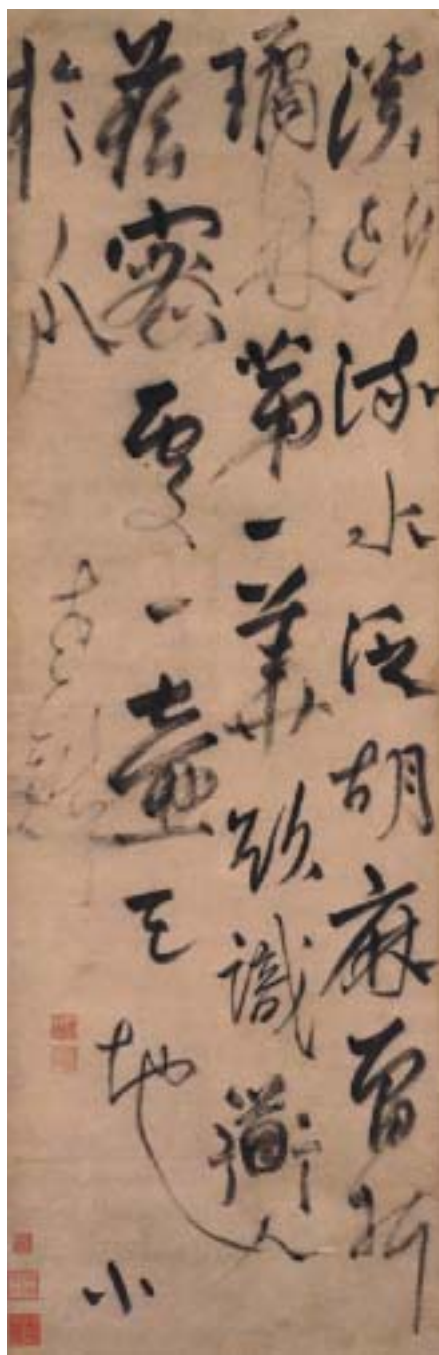 流水泛胡麻曾折
瓊林第一華欲識道人
藏密處一壺天地小
於瓜